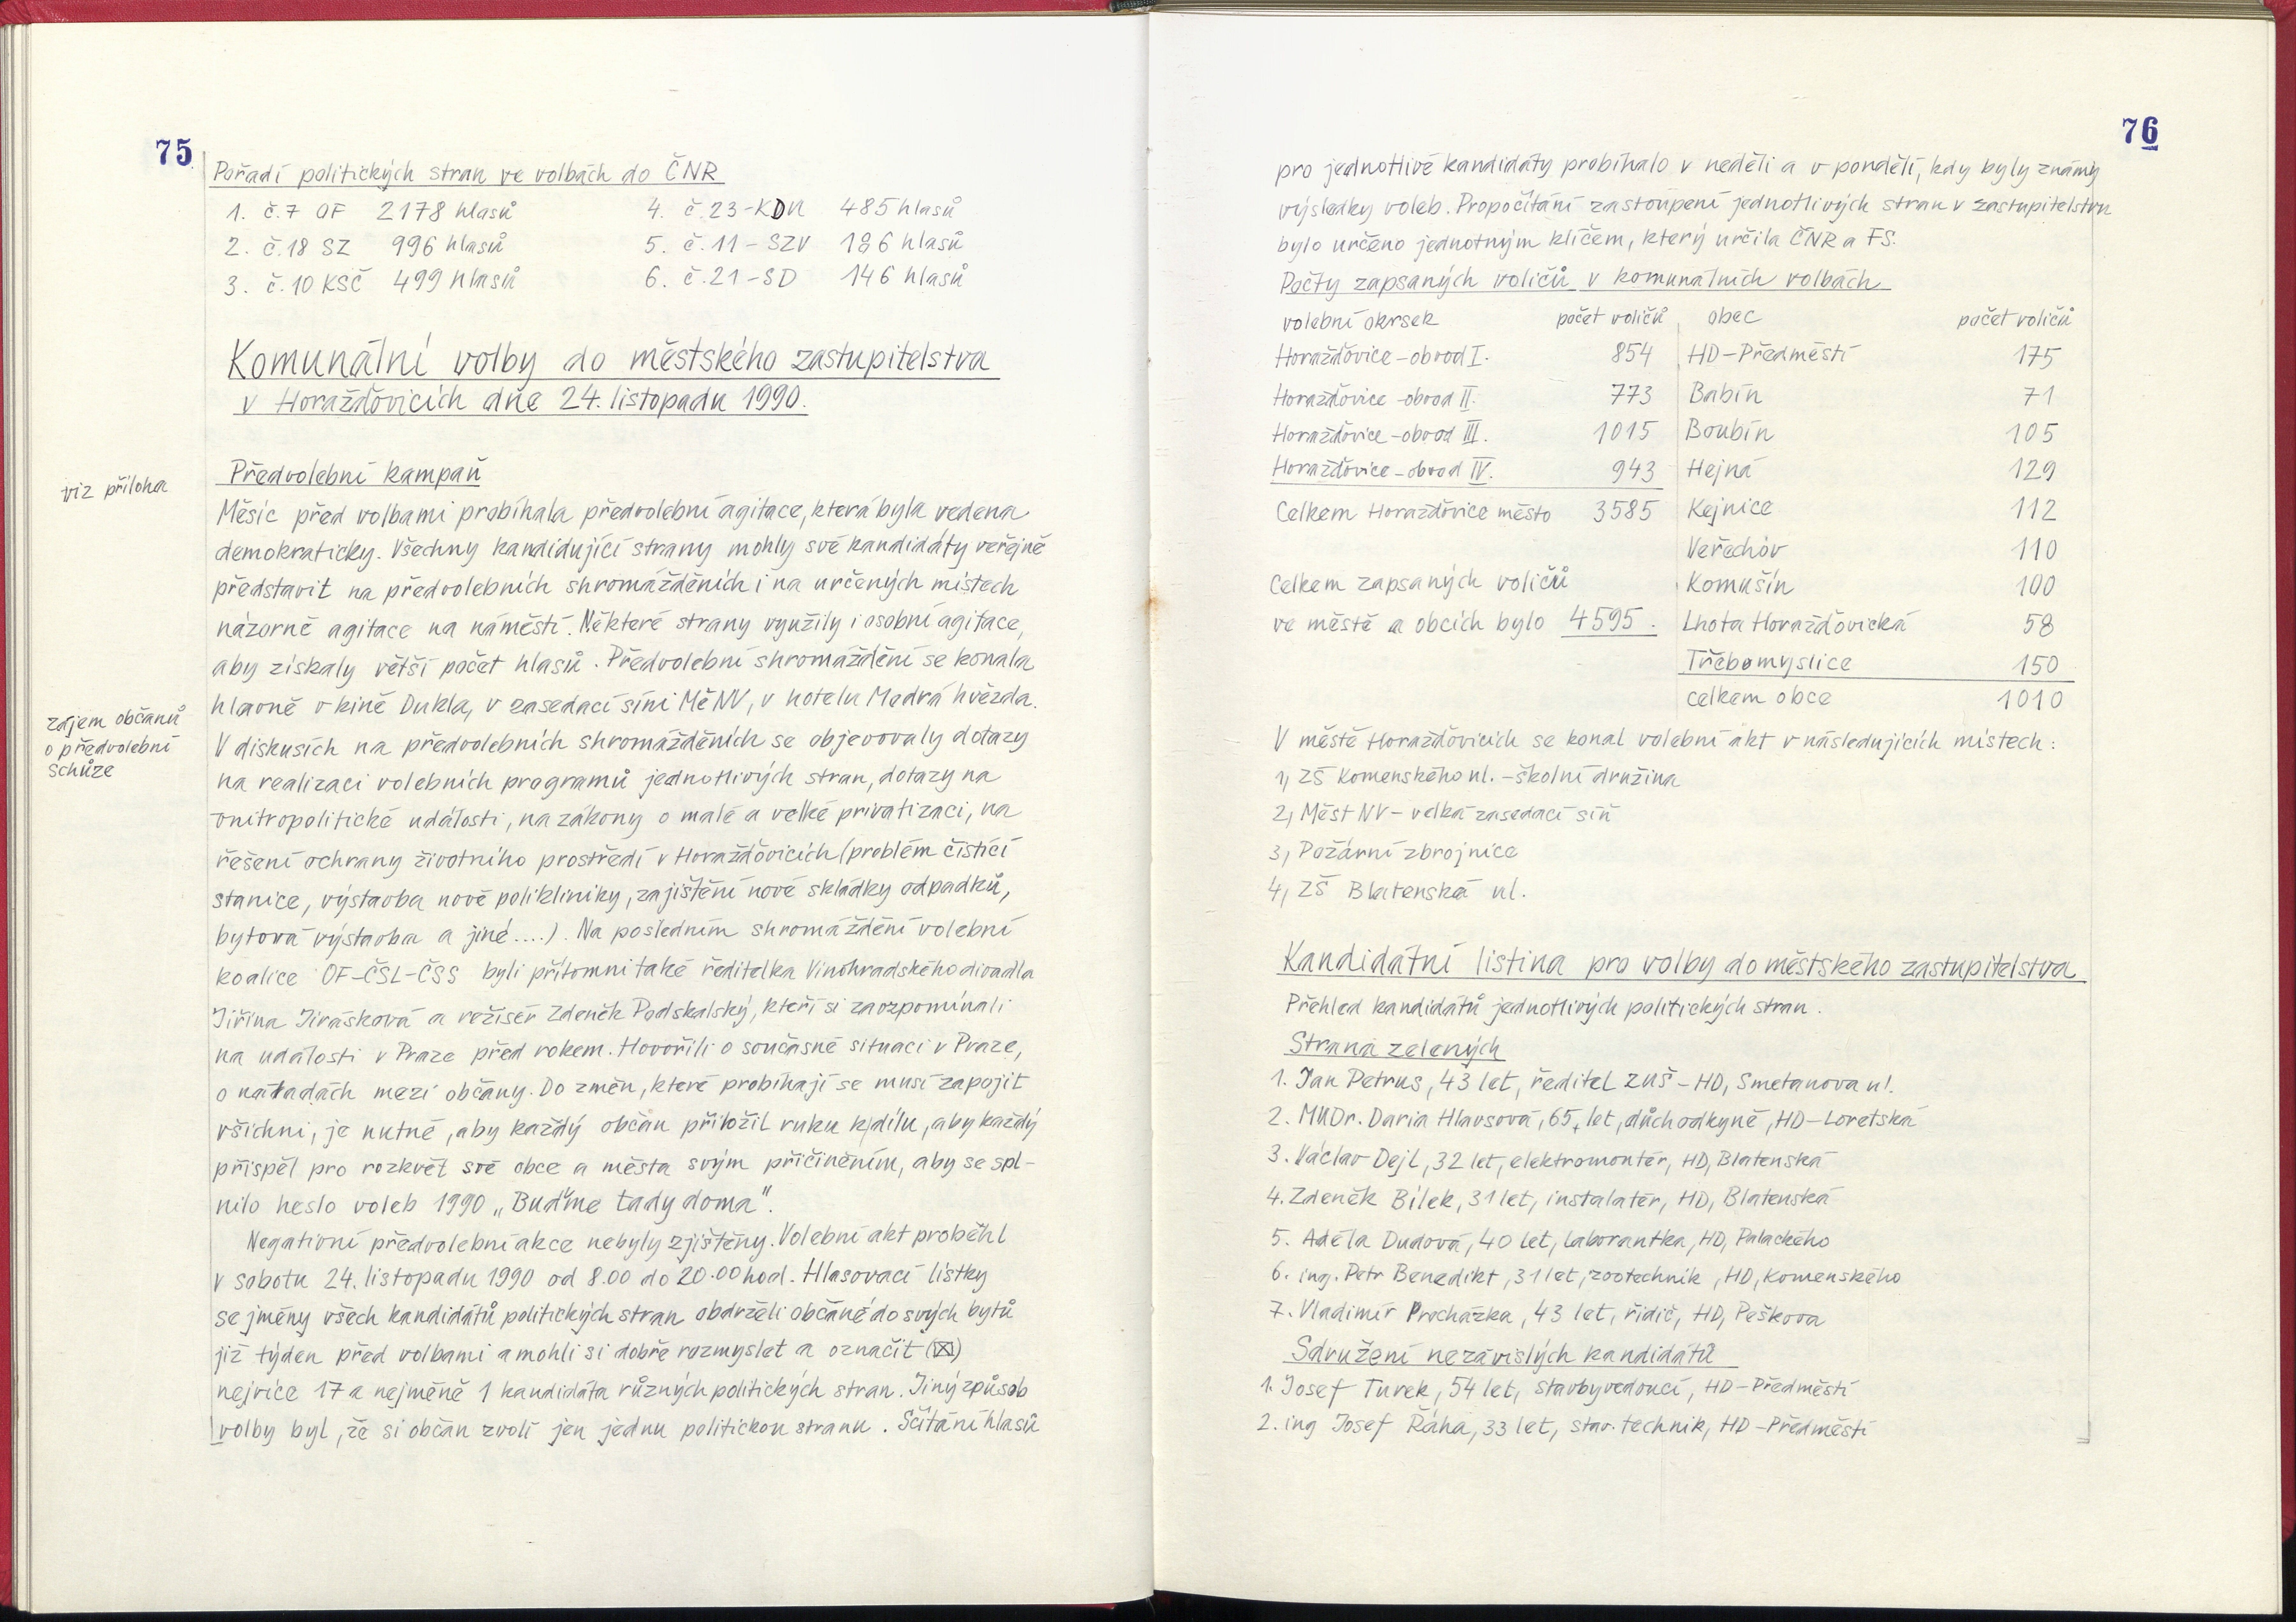 75
Pořadí politických stran ve volbách do ČNR
1. č.7 OF 2178 hlasů
4. č.23-KDU 485 hlasů
2. č.18 SZ 996 hlasů
5. č.11 - SZV 186 hlasů
3. č.10 KSČ 499 hlasů
6. č.21-SD 146 hlasů
Komunální volby do městského zastupitelstva
v Horažďovicích dne 24. listopadu 1990.
viz příloha
Předvolební kampaň
Měsíc před volbami probíhala předvolební agitace, která byla vedena
demokraticky. Všechny kandidující strany mohly své kandidáty veřejně
představit na předvolebních shromážděních i na určených místech
názorné agitace na náměstí. Některé strany využily i osobní agitace,
aby získaly větší počet hlasů. Předvolební shromáždění se konala
hlavně v kině Dukla, v zasedací síni MěNV, v hotelu Modrá hvězda.
zájem občanů
o předvolební
schůze
V diskusích na předvolebních shromážděních se objevovaly dotazy
na realizaci volebních programů jednotlivých stran, dotazy na
vnitropolitické události, na zákony o malé a velké privatizaci, na
řešení ochrany životního prostředí v Horažďovicích (problém čistící
stanice, výstavba nové polikliniky, zajištění nové skládky odpadků,
bytová výstavba a jiné....). Na posledním shromáždění volební
koalice OF-ČSL-ČSS byli přítomni také ředitelka Vinohradského divadla
Jiřina Jirásková a režisér Zdeněk Podskalský, kteří si zavzpomínali
na události v Praze před rokem. Hovořili o současné situaci v Praze,
o náladách mezi občany. Do změn, které probíhají se musí zapojit
všichni, je nutné, aby každý občan přiložil ruku k dílu, aby každý
přispěl pro rozkvět své obce a města svým přičiněním, aby se spl-
nilo heslo voleb 1990 „Buďme tady doma".
Negativní předvolební akce nebyly zjištěny. Volební akt proběhl
v sobotu 24. listopadu 1990 od 8.00 do 20.00 hod. Hlasovací lístky
se jmény všech kandidátů politických stran obdrželi občané do svých bytů
již týden před volbami a mohli si dobře rozmyslet a označit (☒)
nejvíce 17 a nejméně 1 kandidáta různých politických stran. Jiný způsob
volby byl, že si občan zvolí jen jednu politickou stranu. Sčítání hlasů
76
pro jednotlivé kandidáty probíhalo v neděli a v pondělí, kdy byly známy
výsledky voleb. Propočítání zastoupení jednotlivých stran v zastupitelstvu
bylo určeno jednotným klíčem, který určila ČNR a FS.
Počty zapsaných voličů v komunálních volbách
volební okrsek počet voličů obec počet voličů
Horažďovice-obvod I. 854 HD-Předměstí 175
Horažďovice-obvod II. 773 Babín 71
Horažďovice-obvod III. 1015 Boubín 105
Horažďovice-obvod IV. 943 Hejná 129
Celkem Horažďovice město 3585 Kejnice 112
Veřechov 110
Celkem zapsaných voličů Komušín 100
ve městě a obcích bylo 4595. Lhota Horažďovická 58
Třebomyslice 150
celkem obce 1010
V městě Horažďovicích se konal volební akt v následujících místech:
1, ZŠ Komenského ul. - školní družina
2, Měst NV - velká zasedací síň
3, Požární zbrojnice
4, ZŠ Blatenská ul.
Kandidátní listina pro volby do městského zastupitelstva
Přehled kandidátů jednotlivých politických stran.
Strana zelených
1. Jan Petrus, 43 let, ředitel ZUŠ - HD, Smetanova ul.
2. MUDr. Daria Hlavsová, 65 let, důchodkyně, HD-Loretská
3. Václav Dejl, 32 let, elektromontér, HD, Blatenská
4. Zdeněk Bílek, 31 let, instalatér, HD, Blatenská
5. Adéla Dudová, 40 let, laborantka, HD, Palackého
6. ing. Petr Benedikt, 31 let, zootechnik, HD, Komenského
7. Vladimír Procházka, 43 let, řidič, HD, Peškova
Sdružení nezávislých kandidátů
1. Josef Turek, 54 let, stavbyvedoucí, HD-Předměstí
2. ing Josef Řáha, 33 let, stav. technik, HD-Předměstí